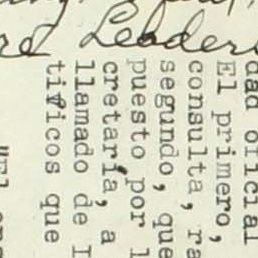 Leaders
dad oficial
El primero,
consulta, ra
segundo, que
puesto por l
cretaría, a
llamado de I
tivicos que